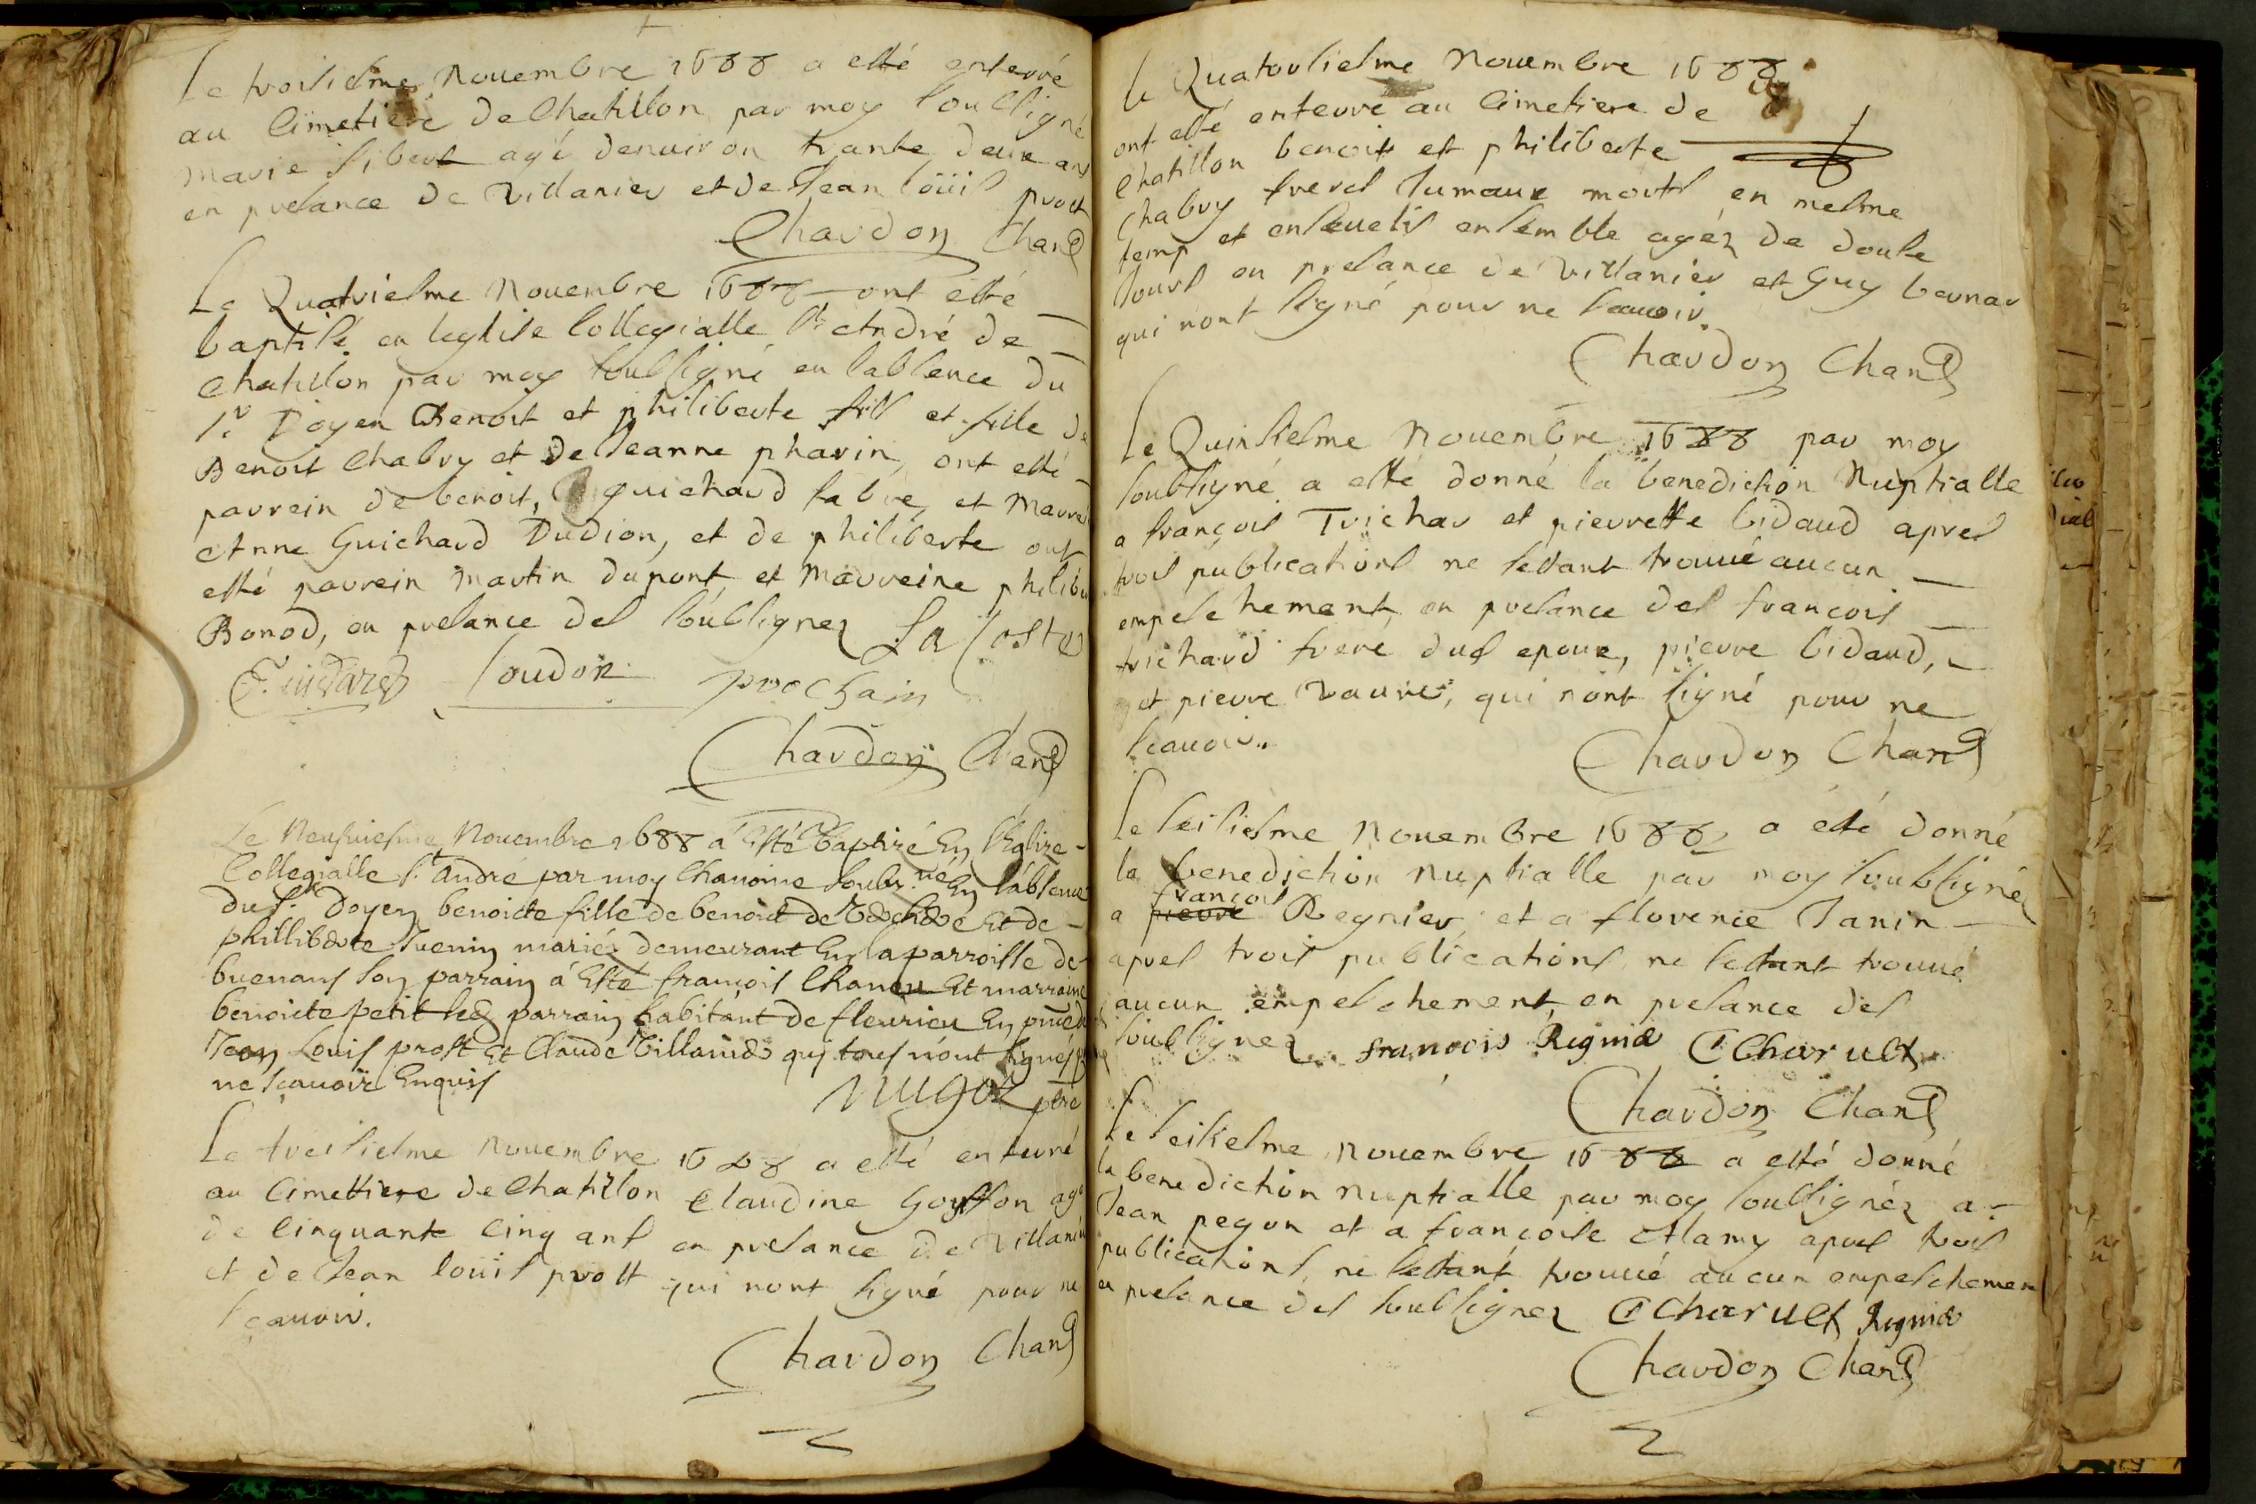 Le troisiesme Nouembre 1688 a esté enterré
au Cimetiere de Chatillon par moy soussigné
Marie sibert agé denuiron trante deux ans
en presance de Villanier et de Jean loüis prost
Chardon Chan
Le Quatriesme Nouembre 1688 ont esté
baptisé en leglise Collegialle St André de
Chatillon par moy soussigné en labsence du
Sr Doyen Benoit et philiberte fils et fille de
Benoit Chabry et de Jeanne pharin, ont esté
parrein de benoit, guichard fabre, et Marreine
Anne Guichard Dudion, et de philiberte ont
esté parrein Martin dupont et marreine philib
Bonod, en presance des soubsignez La Coste
Loudon prochain
Chardon Chan
Le Neufuiesme Nouembre 1688 a Esté baptizé En l'Eglize
Collegialle St André par moy Chanoine soubz.né En l'absence
du Sr Doyen benoicte fille de benoict de Et de
phillib.te Juenin mariéz demeurant En la parroisse de
buenans son parrain a Esté françois Chaneu Et marraine
benoicte petit led parrain habitant de fleurieu En pñce de
Jean Louis prost Et Claude Villanier qui tous n'ont signés p
ne scauoir Enquis
Nugoz ptre
Le treisiesme Nouembre 1688 a esté enterré
au Cimettiere de Chatillon Claudine Goyffon agé
de Cinquante Cinq ans en presance de Villanier
et de Jean loüis prost qui nont signé pour ne
scauoir.
Chardon Chan
le Quatorsiesme Nouembre 1688
ont esté enterré au Cimetiere de
Chatillon benoit et philiberte
Chabry freres Jumaux morts en mesme
temp et enseuelis ensemble agéz de douse
Jours en presance de Villanier et Guy bernar
qui nont signé pour ne scauoir.
Chardon Chan
Le Quinsiesme Nouembre 1688 par moy
soubsigné a esté donné la benediction Nuptialle
a françois Trichar et pierrette bidaud apres
trois publications ne sestant trouué aucun
empeschement, en presance des françois
trichard frere dud epoux, pierre bidaud,
et pierre Vaurie, qui nont signé pour ne
scauoir.
Chardon Chan
Le seisiesme Nouembre 1688 a été donné
la benediction nuptialle par moy soubsignéz
a pierre françois Regnier, et a florence Janin
apres trois publications ne sestant trouué
aucun empeschement, en presance des
soubsignez francois Regnier Charuet
Chardon Chan
Le seisiesme Nouembre 1688 a esté donné
la benediction nuptialle par moy soussignéz a
Jean pegon et a françoise Alamy apres trois
publications, ne sestant trouué aucun empeschemen
en presance des soubsignez Charuet Regnier
Chardon Chan